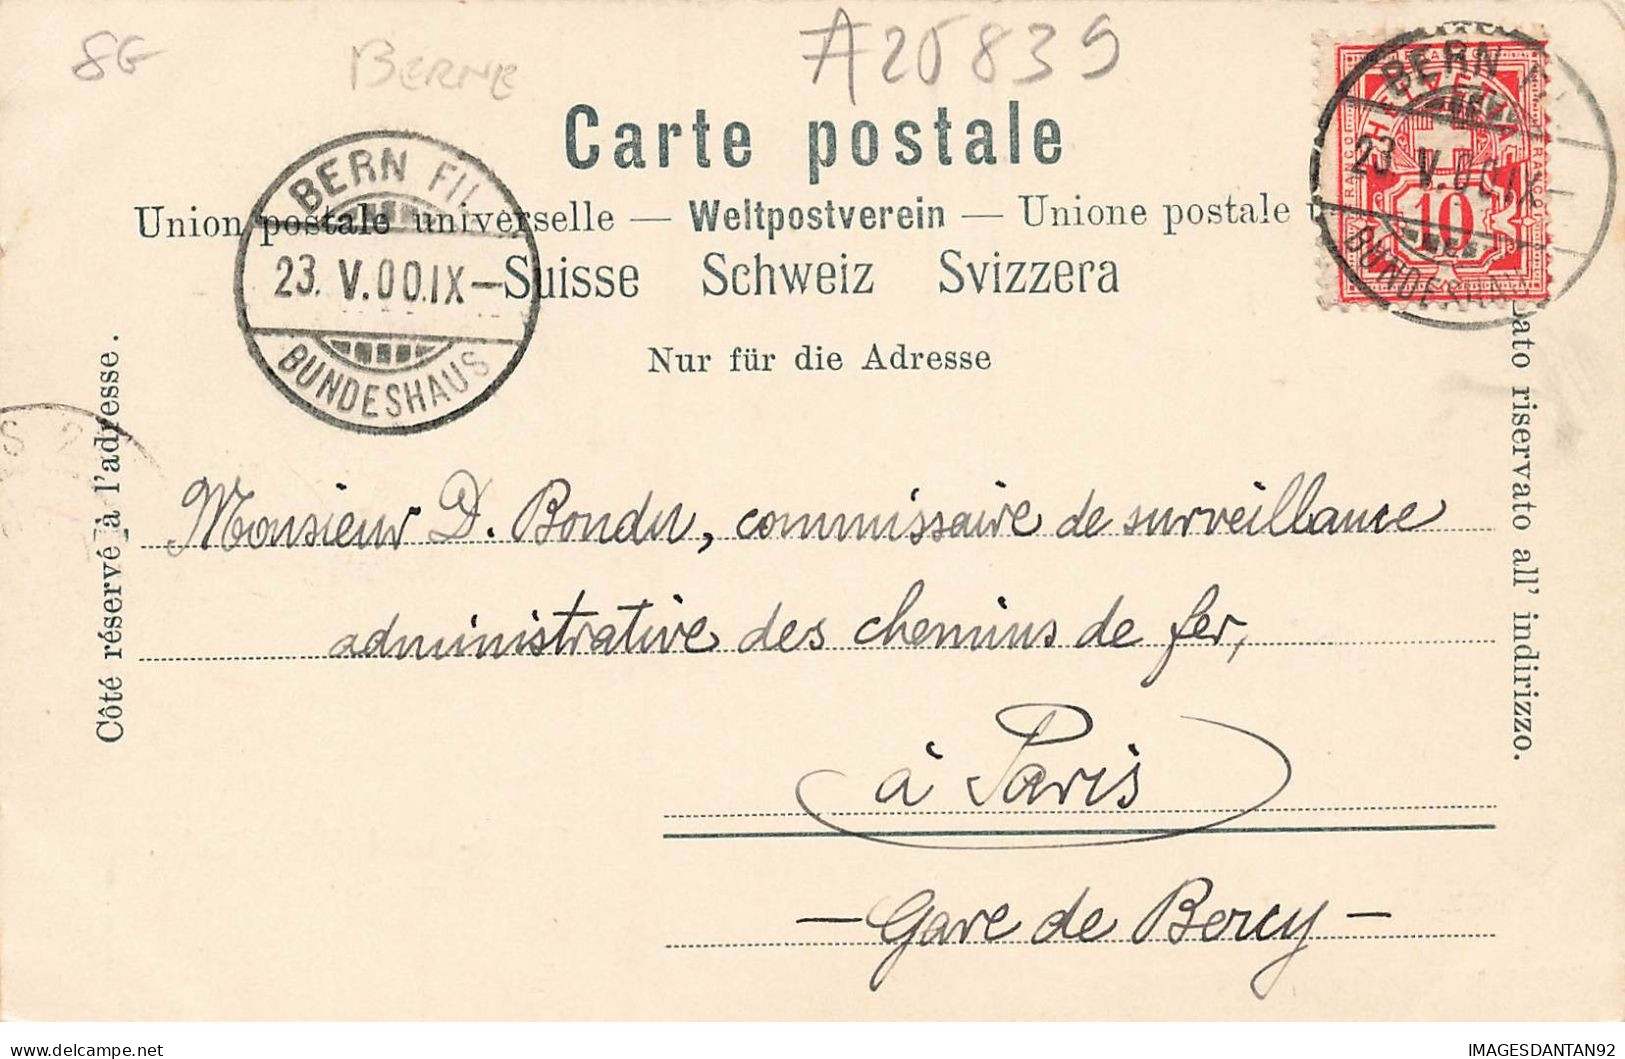 8G
BERNE
A25839
Carte postale
Union postale universelle — Weltpostverein — Unione postale
Suisse Schweiz Svizzera
Nur für die Adresse
BERN FIL
23. V. 00. IX –
BUNDESHAUS
BERN
HELVETIA
FRANCO
10
23. V. 00. IX
BUNDESHAUS
Côté réservé à l'adresse.
Lato riservato all' indirizzo.
Monsieur D. Bondu, commissaire de surveillance
administrative des chemins de fer,
à Paris
— Gare de Bercy —
delcampe.net
IMAGESDANTAN92